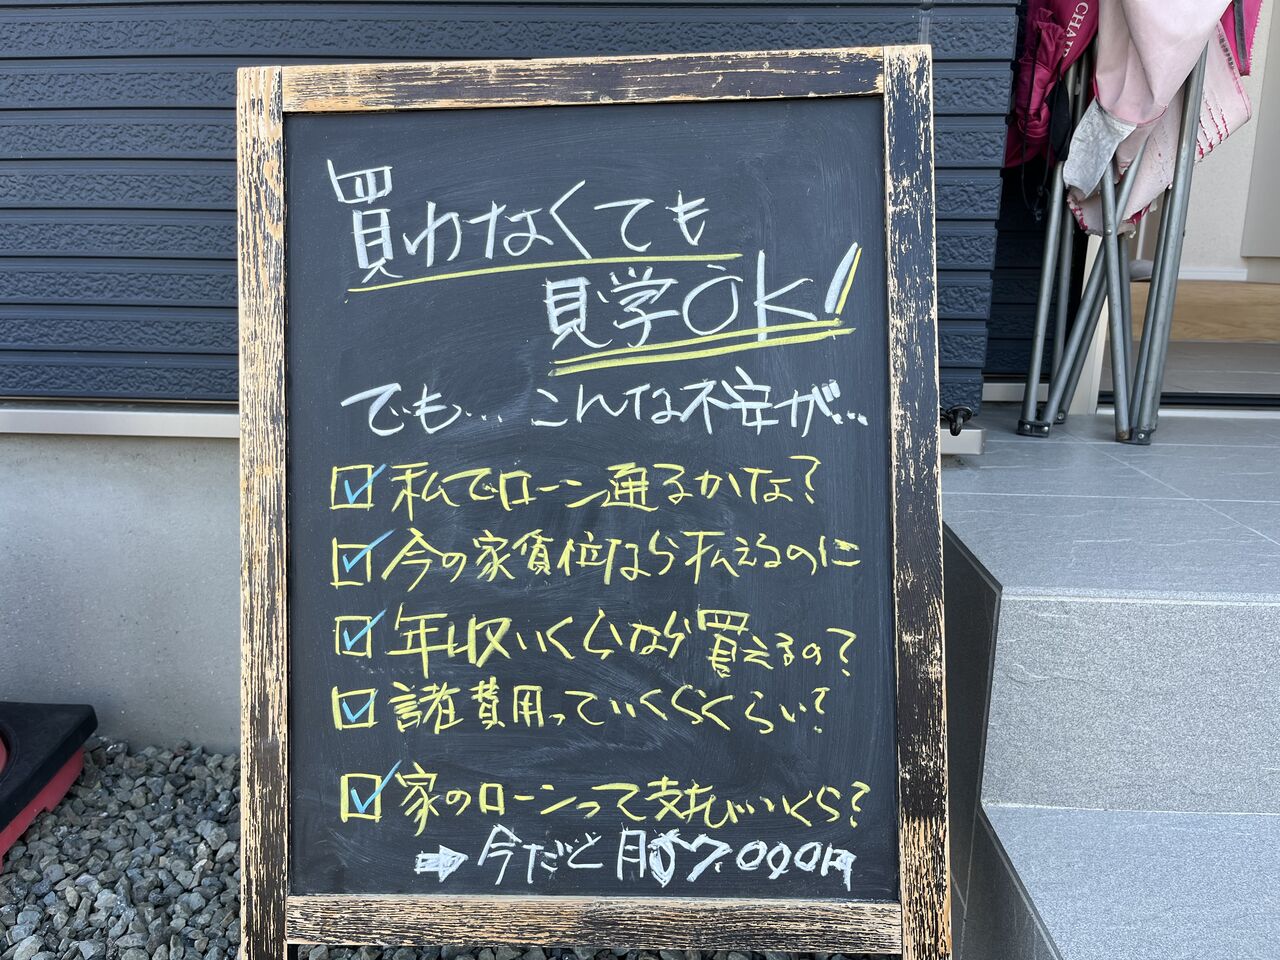 買わなくても
見学OK!
でも…こんな不安が…
☑私でローン通るかな?
☑今の家賃位なら払えるのに
☑年収いくらなら買えるの?
☑諸費用っていくらくらい?
☑家のローンって支払いいくら?
➡今だと月 7.000円
CHAI